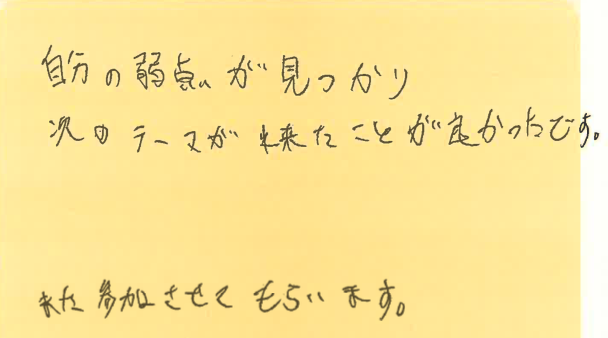 自分の弱点が見つかり
次のテーマが出来たことが良かったです。
また参加させてもらいます。